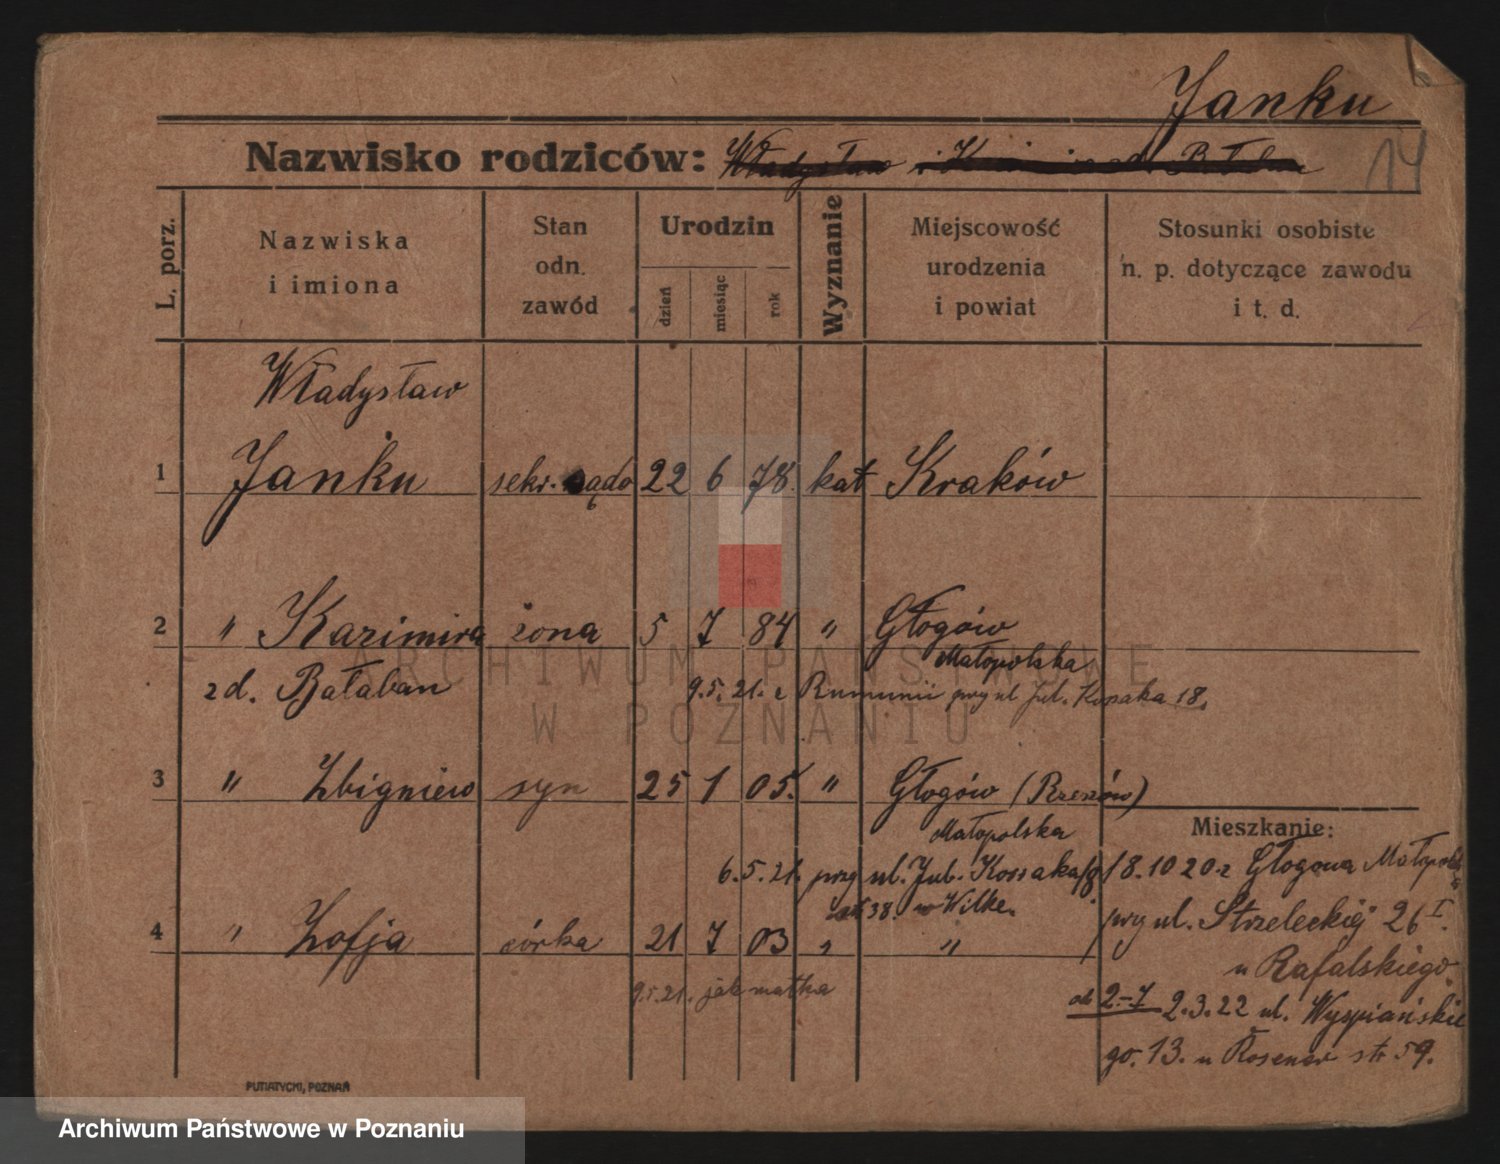 Janku
14
Nazwisko rodziców: Władysław i
L. porz.
Nazwiska i imiona
Stan odn. zawód
Urodzin
dzień
miesiąc
rok
Wyznanie
Miejscowość urodzenia i powiat
Stosunki osobiste n. p. dotyczące zawodu i t. d.
Władysław
1 Janku sekr. sądo 22 6 78. kat Kraków
2 " Kazimira żona 5 7 84 " Głogów
Małopolska
zd. Bałaban 9.5.21. z Rumunii przy ul Jul. Kossaka 18.
3 " Zbigniew syn 25 1 05. " Głogów (Rzeszów)
Małopolska
6.5.21. przy ul. Jul. Kossaka 18
38. w Wilke.
4 " Zofja córka 21 7 03 " "
9.5.21. jak matka
Mieszkanie:
18.10 20 z Głogowa Małopol
przy ul. Strzeleckiéj 26 I.
u Rafalskiego
od 2-7 2.3.22 ul. Wyspiańskie
go. 13. u Rosenow str 59.
PUTIATYCKI, POZNAŃ
ARCHIWUM PAŃSTWOWE
W POZNANIU
Archiwum Państwowe w Poznaniu